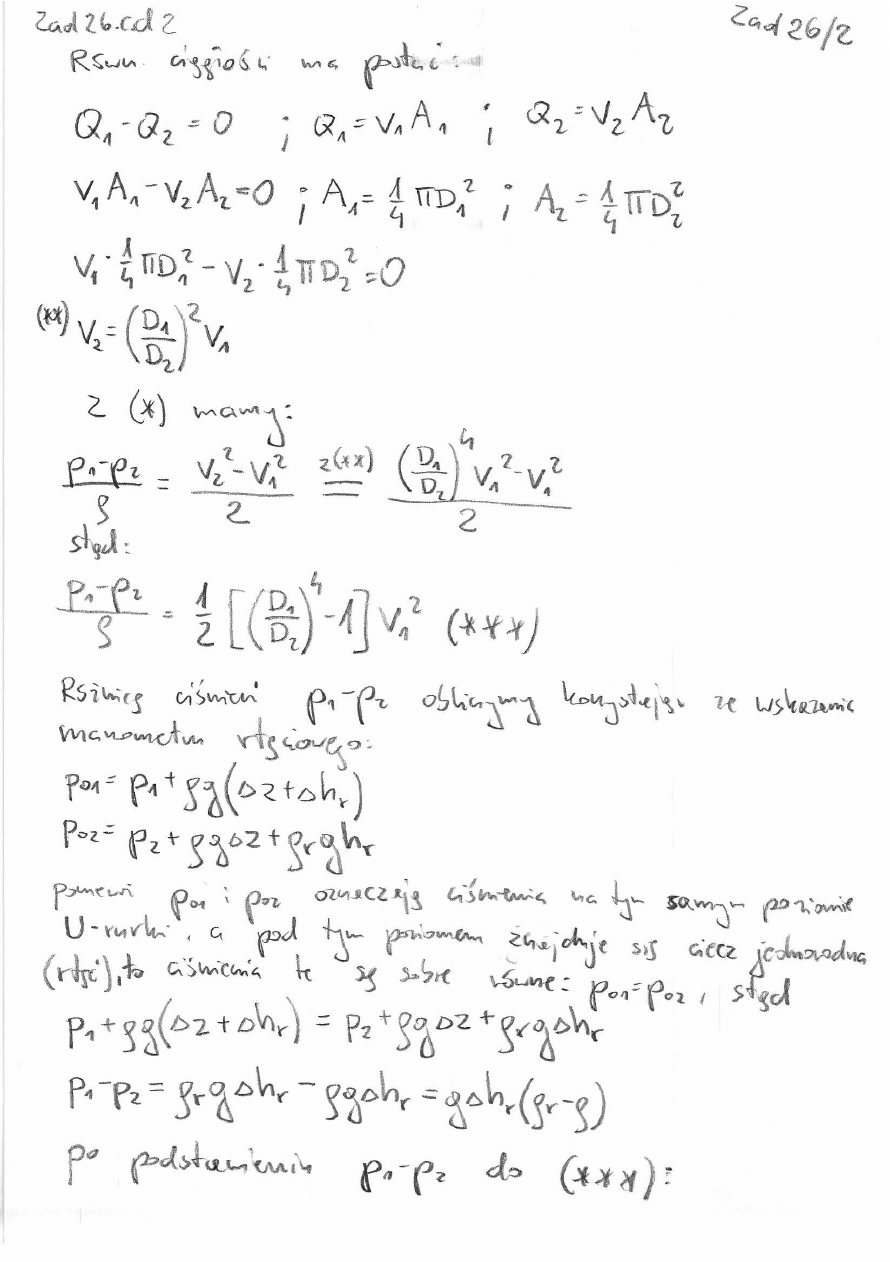 Zad 26.cd 2
Zad 26/2
Równ. ciągłości ma postać:
Q₁-Q₂=0 ; Q₁=V₁A₁ ; Q₂=V₂A₂
V₁A₁-V₂A₂=0 ; A₁=1/4 ΠD₁² ; A₂=1/4 ΠD₂²
V₁·1/4 ΠD₁² - V₂·1/4 ΠD₂²=0
(**) V₂=(D₁/D₂)² V₁
z (*) mamy:
(p₁-p₂)/ρ = (V₂²-V₁²)/2 z(**)= ((D₁/D₂)⁴ V₁²-V₁²)/2
stąd:
(p₁-p₂)/ρ = 1/2 [(D₁/D₂)⁴-1] V₁² (***)
Różnicę ciśnień p₁-p₂ obliczymy korzystając ze wskazania
manometru rtęciowego:
p₀₁= p₁+ρg(Δz+Δhᵣ)
p₀₂= p₂+ρgΔz+ρᵣghᵣ
ponieważ p₀₁ i p₀₂ oznaczają ciśnienia na tym samym poziomie
U-rurki, a pod tym poziomem znajduje się ciecz jednorodna
(rtęć), to ciśnienia te są sobie równe: p₀₁=p₀₂, stąd
p₁+ρg(Δz+Δhᵣ) = p₂+ρgΔz+ρᵣgΔhᵣ
p₁-p₂= ρᵣgΔhᵣ - ρgΔhᵣ = gΔhᵣ(ρᵣ-ρ)
po podstawieniu p₁-p₂ do (***):